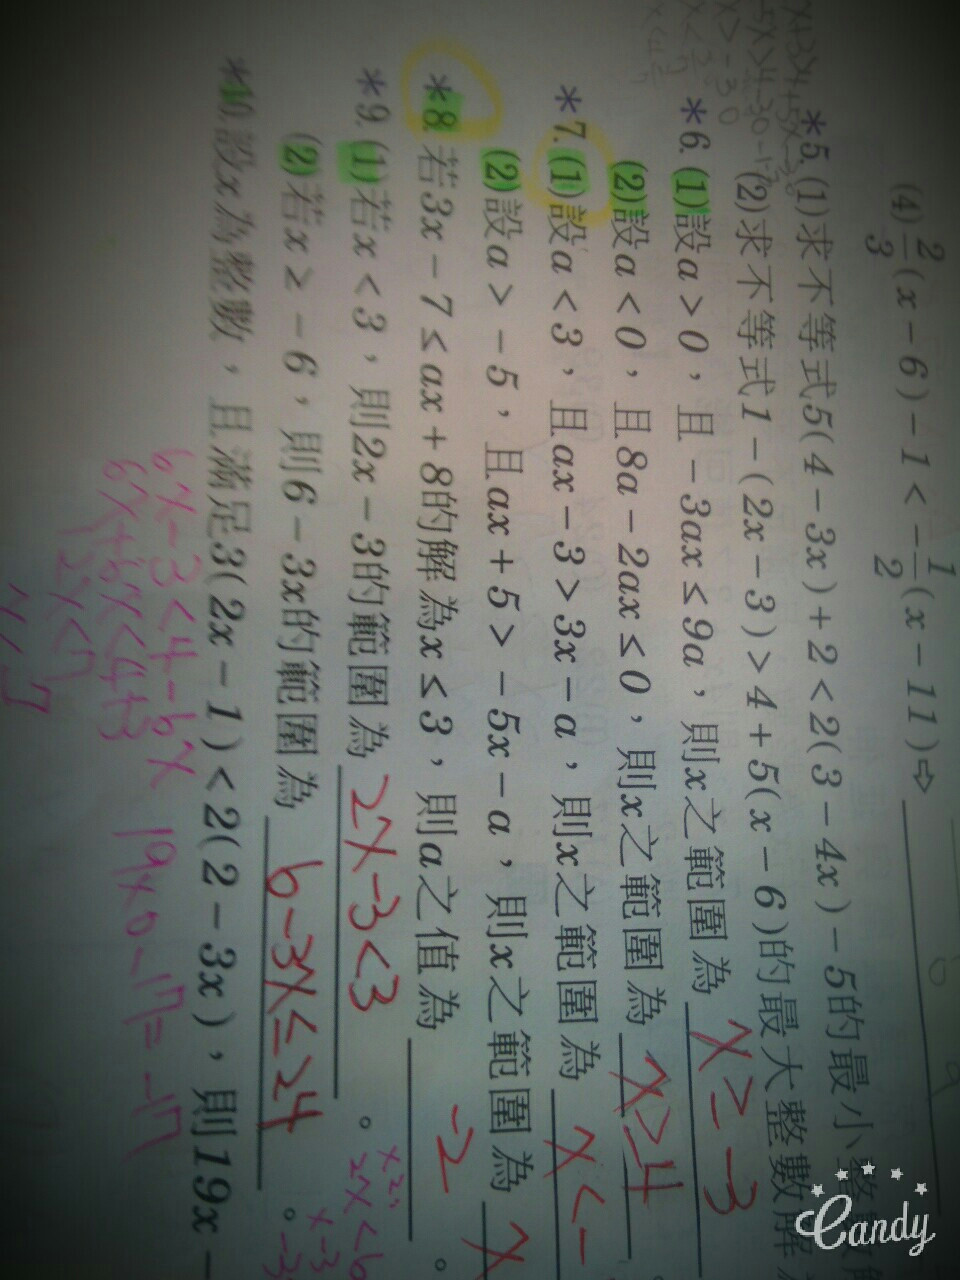 (4) 2/3(x-6)-1<-1/2(x-11)⇨
*5.(1)求不等式5(4-3x)+2<2(3-4x)-5的最小整數解
(2)求不等式1-(2x-3)>4+5(x-6)的最大整數解
*6.(1)設a>0，且-3ax≤9a，則x之範圍為 x≥-3
(2)設a<0，且8a-2ax≤0，則x之範圍為 x≥4 。
*7.(1)設a<3，且ax-3>3x-a，則x之範圍為 x<-
(2)設a>-5，且ax+5>-5x-a，則x之範圍為 x
*8.若3x-7≤ax+8的解為x≤3，則a之值為 -2 。
*9.(1)若x<3，則2x-3的範圍為 2x-3<3 。
2x<6
(2)若x≥-6，則6-3x的範圍為 6-3x≤24 。
*10.設x為整數，且滿足3(2x-1)<2(2-3x)，則19x-
6x-3<4-6x 19x0-17=-17
6x+6x<4+3
12x<7
Candy